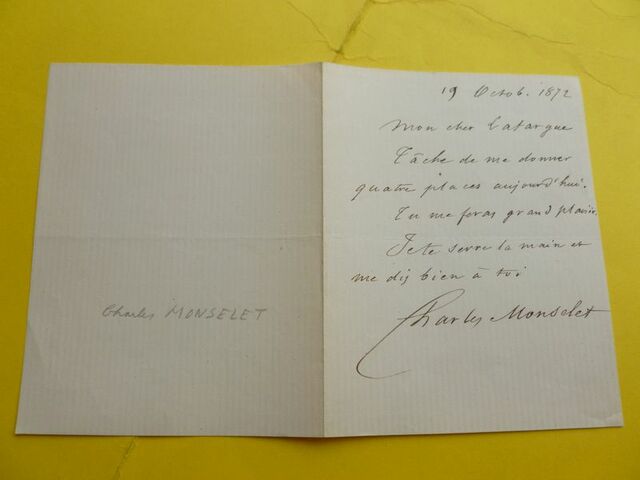 19 Octob. 1872
Mon cher Latargue
Tâche de me donner
quatre places aujourd'hui.
Tu me feras grand plaisir.
Je te serre la main et
me dis bien à toi
Charles Monselet
Charles MONSELET